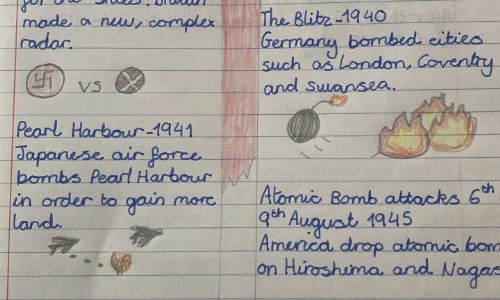 made a new, complex
radar.
VS
Pearl Harbour-1941
Japanese air force
bombs Pearl Harbour
in order to gain more
land.
The Blitz-1940
Germany bombed cities
such as London, Coventry
and Swansea.
Atomic Bomb attacks 6th
9th August 1945
America drop atomic bom
on Hiroshima and Nagas